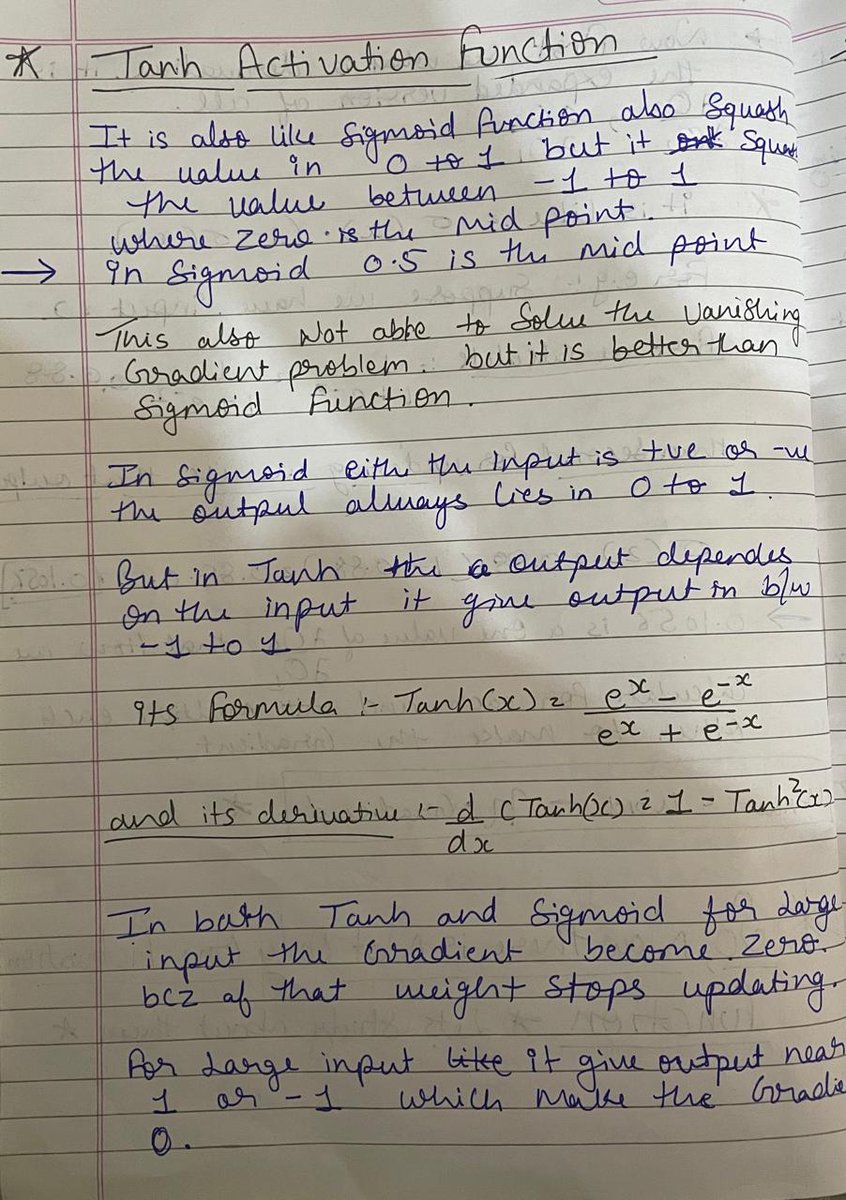 * Tanh Activation Function
It is also like Sigmoid function also Squash
the value in 0 to 1 but it Squ
the value between -1 to 1
where zero is the Mid point.
→ in Sigmoid 0.5 is the mid point
This also Not abhe to Solve the Vanishing
Gradient problem. but it is better than
Sigmoid function.
In Sigmoid eith the input is +ve or -ve
the output always lies in 0 to 1.
But in Tanh the output dependes
on the input it give output in b/w
-1 to 1
its formula :- Tanh(x) = e^x - e^-x / e^x + e^-x
and its derivative :- d/dx (Tanh(x) = 1 - Tanh²(x)
In bath Tanh and Sigmoid for Large
input the Gradient become zero.
bcz of that weight stops updating.
For Large input like it give output near
1 or -1 which make the Gradie
0.